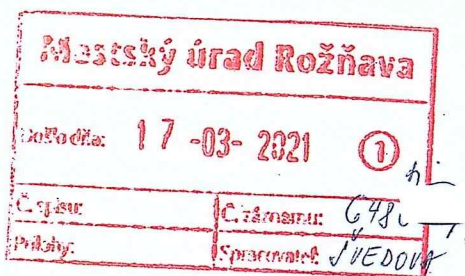 Mestský úrad Rožňava
Došlo dňa: 17 -03- 2021 1
Č. spisu: Č. záznamu:
Prílohy: Spracovateľ: ŠVEDOVÁ